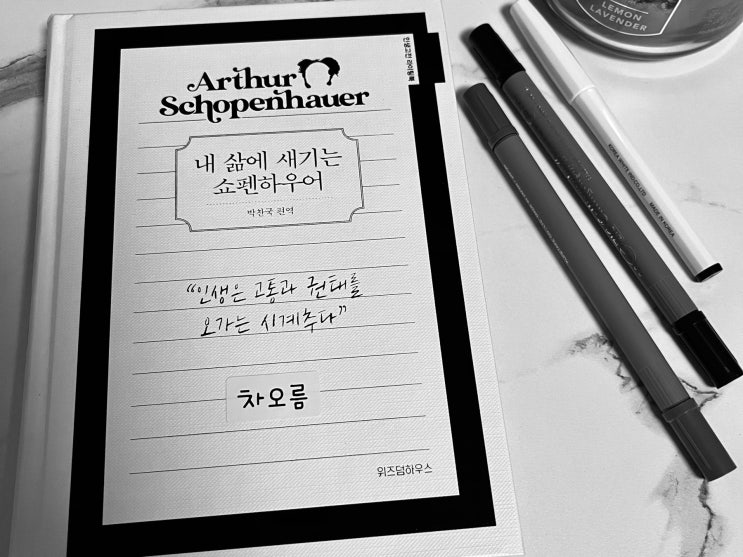 Arthur
Schopenhauer
인생고전 라이팅북
내 삶에 새기는
쇼펜하우어
박찬국 편역
“인생은 고통과 권태를
오가는 시계추다”
차오름
위즈덤하우스
LEMON
LAVENDER
MADE IN KOREA